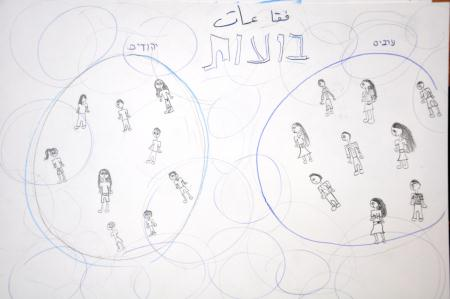 فقاعات
בועות
יהודים
ערבים